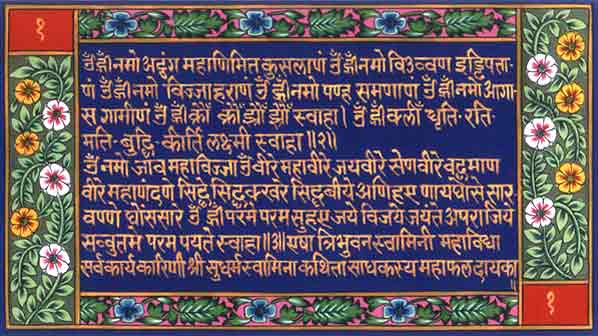 १
ॐ ह्रीं नमो अट्ठंग महाणिमित्त कुसलाणं ॐ ह्रीं नमो विउव्वण इड्ढिपत्ता-
णं ॐ ह्रीं नमो विज्जाहराणं ॐ ह्रीं नमो पण्ह समणाणं ॐ ह्रीं नमो आगा-
स गामीणं ॐ ह्रीं स्वाहा। ॐ ह्रीं क्लीं धृति-रति-
मति-बुद्धि-कीर्ति लक्ष्मी स्वाहा ॥२॥
ॐ नमो जाव महाविज्जा ॐ वीरे महावीरे जयवीरे सेणवीरे वद्धमाण
वीरे अणिहए णायघोस सार-
वण्णे घोससारे ॐ ह्रीं परमे परम सुहए जये विजये जयंते अपराजिये
सव्वुतमे परम पयत्ते स्वाहा॥३॥ एषा त्रिभुवन स्वामिनी महाविद्या
सर्व कार्य कारिणी श्री सुधर्मस्वामिना कथिता साधकस्य महाफल दायका॥
१